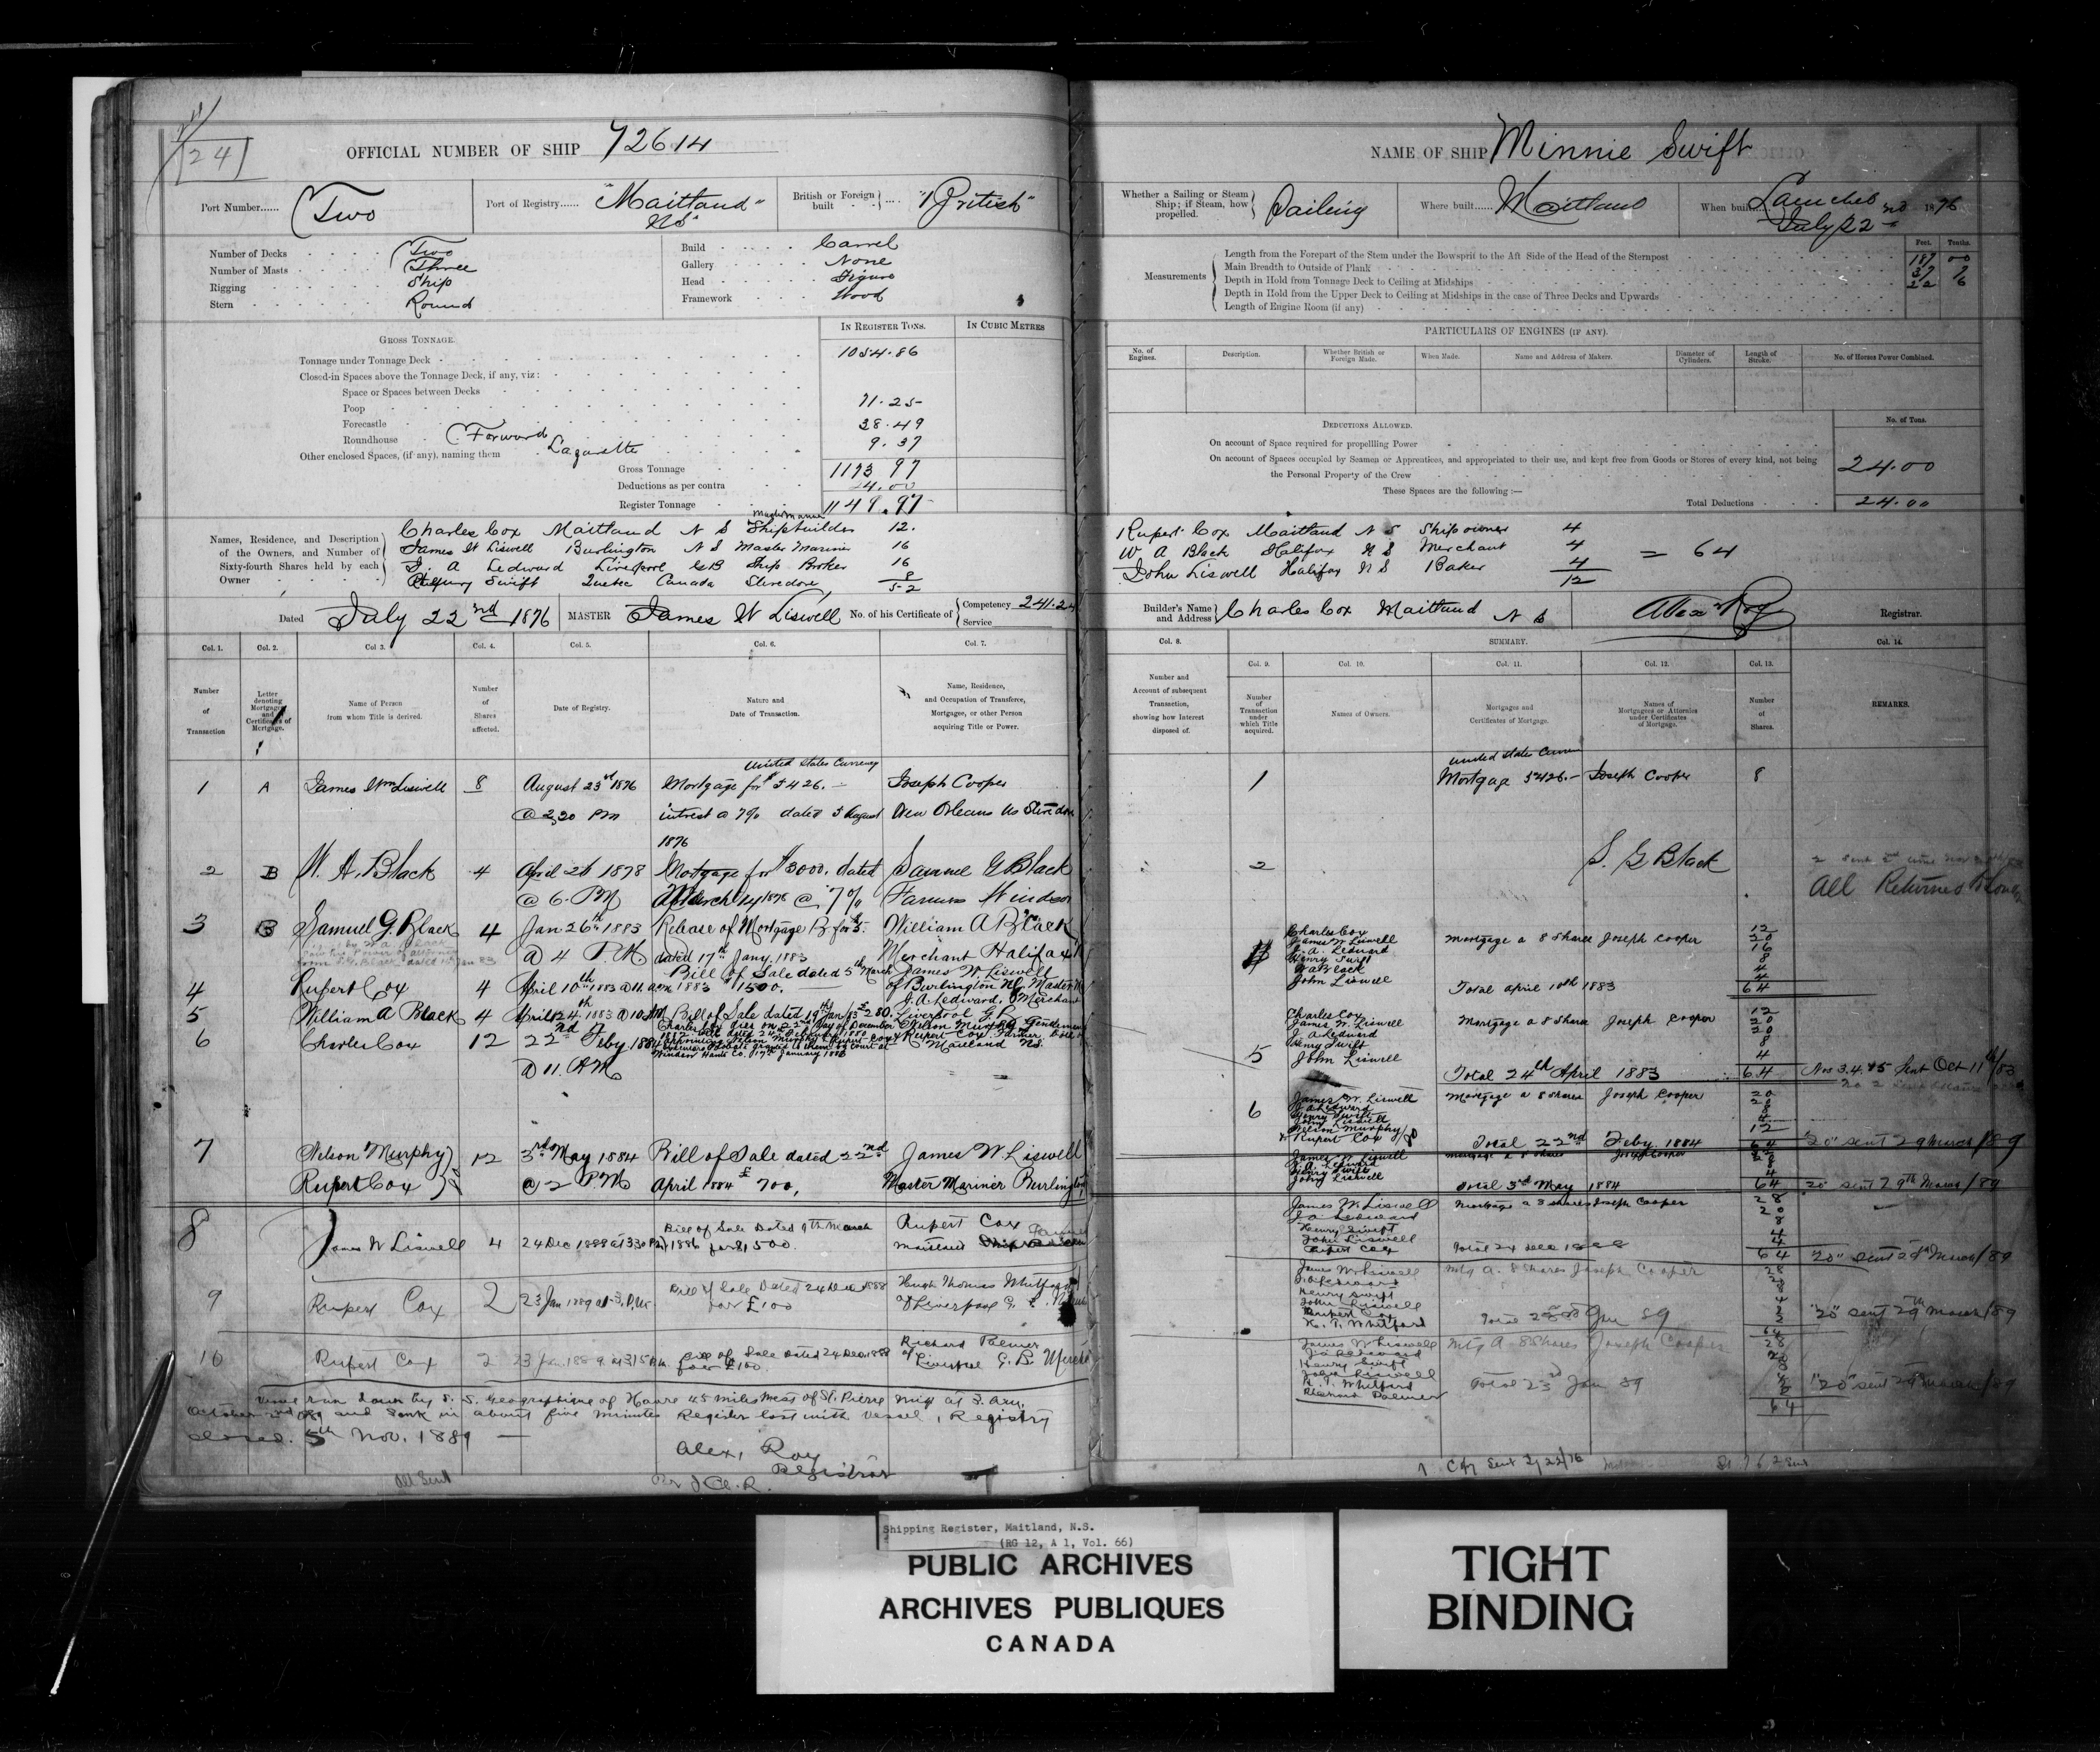 24
OFFICIAL NUMBER OF SHIP 72614
Port Number...... Two
Port of Registry...... "Maitland" NS
British or Foreign built .... "British"
Number of Decks Two
Number of Masts Three
Rigging Ship
Stern Round
Build Carvel
Gallery None
Head Figure
Framework Wood
GROSS TONNAGE.
IN REGISTER TONS.
IN CUBIC METRES
Tonnage under Tonnage Deck 1054.86
Closed-in Spaces above the Tonnage Deck, if any, viz:
Space or Spaces between Decks
Poop 71.25
Forecastle
Roundhouse Forward 38.49
Other enclosed Spaces, (if any), naming them Lazarette 9.37
Gross Tonnage 1173 97
Deductions as per contra 24.00
Register Tonnage 1149.97
Names, Residence, and Description of the Owners, and Number of Sixty-fourth Shares held by each Owner
Master Mariner
Charles Cox Maitland N S Shipbuilder 12.
James W Liswell Burlington N S Master Mariner 16
J. A Ledward Liverpool GB Ship Broker 16
Henry Swift Quebec Canada Stevedore 8
52
Dated July 22nd 1876
MASTER James W Liswell
No. of his Certificate of Competency Service
Col. 1.
Col. 2.
Col 3.
Col. 4.
Col. 5.
Col. 6.
Col. 7.
Number of Transaction
Letter denoting Mortgage and Certificates of Mortgage.
Name of Person from whom Title is derived.
Number of Shares affected.
Date of Registry.
Nature and Date of Transaction.
Name, Residence, and Occupation of Transferee, Mortgagee, or other Person acquiring Title or Power.
United States Currency
1 A James Wm Liswell 8 August 23rd 1876 Mortgage for $426.— Joseph Cooper
@ 2.20 PM intrest @ 7% dated 5 August New Orleans US Stevedore
1876
2 B W. A. Black 4 April 26 1878 Mortgage for $3000. dated Samuel G Black
@ 6. PM March 14 1878 @ 7% Farmer Windsor
3 B Samuel G. Black 4 Jan 26th 1883 Release of Mortgage B for William A Black
by W A Black
@ 4 P.M dated 17th Jany. 1883 Merchant Halifax
4 Rupert Cox 4 April 10th 1883 @ 11. am Bill of Sale dated 5th March 1883 $1500. James W. Liswell of Burlington NS, Master
5 William A Black 4 April 24th 1883 @ 10 AM Bill of Sale dated 19th Jan /83 £280. J. A. Ledward, Merchant Liverpool G.B
6 Charles Cox 12 22nd Feby. 1884
@ 11. AM
Charles Cox died on 22nd day of December
1882 Will dated 24th February 1880
appointing Nelson Murphy & Rupert Cox
Executors Probate granted to them by Court at
Windsor Hants Co. 17th January 1883
Nelson Murphy Gentleman
& Rupert Cox. Farmer both of
Maitland NS.
7 Nelson Murphy 12 3rd May 1884 Bill of Sale dated 22nd James W. Liswell
Rupert Cox @ 2 P.M April 1884 £700, Master Mariner Burlington
8 James W Liswell 4 24 Dec 1888 at 3.30 PM Bill of Sale Dated 9th March 1886 for $1,500. Rupert Cox Maitland Farmer
9 Rupert Cox 2 23 Jan 1889 at 3. P.M. Bill of Sale Dated 24 Dec 1888 for £100 Hugh Thomas Whitford of Liverpool G. B.
10 Rupert Cox 2 23 Jan. 1889 at 3.15 P.M. Bill of Sale Dated 24 Dec. 1888 for £100. Richard Palmer of Liverpool G. B. Merchant
Vessel run down by S. S. Geographique of Havre 45 miles West of St. Pierre Miq at 3. a.m.
October 2nd 1889 and Sunk in about five minutes Register lost with vessel, Registry
closed. 5th Nov. 1889 —
Alex, Roy
Registrar
All Sent
NAME OF SHIP Minnie Swift
Whether a Sailing or Steam Ship; if Steam, how propelled. Sailing
Where built...... Maitland
When built...... Launched July 22nd 1876
Measurements
Feet. Tenths.
Length from the Forepart of the Stem under the Bowsprit to the Aft Side of the Head of the Sternpost 187 00
Main Breadth to Outside of Plank 37 7
Depth in Hold from Tonnage Deck to Ceiling at Midships 22 6
Depth in Hold from the Upper Deck to Ceiling at Midships in the case of Three Decks and Upwards
Length of Engine Room (if any)
PARTICULARS OF ENGINES (IF ANY).
No. of Engines.
Description.
Whether British or Foreign Made.
When Made.
Name and Address of Makers.
Diameter of Cylinders.
Length of Stroke.
No. of Horses Power Combined.
DEDUCTIONS ALLOWED.
No. of Tons.
On account of Space required for propellling Power
On account of Spaces occupied by Seamen or Apprentices, and appropriated to their use, and kept free from Goods or Stores of every kind, not being the Personal Property of the Crew 24.00
These Spaces are the following:—
Total Deductions 24.00
Rupert Cox Maitland N S Ship owner 4
W A Black Halifax N S Merchant 4 = 64
John Liswell Halifax N S Baker 4
12
Builder's Name and Address Charles Cox Maitland N S
Alex Roy Registrar.
Col. 8.
SUMMARY.
Col. 14.
Col. 9.
Col. 10.
Col. 11.
Col. 12.
Col. 13.
Number and Account of subsequent Transaction, showing how Interest disposed of.
Number of Transaction under which Title acquired.
Names of Owners.
Mortgages and Certificates of Mortgage.
Names of Mortgagees or Attornies under Certificates of Mortgage.
Number of Shares.
REMARKS.
United States Curren
1 Mortgage $426.— Joseph Cooper 8
2 S. G Black
All Returned
4
Charles Cox 12
James W Liswell 20
J. A. Ledward 16
Henry Swift 8
W A Black 4
John Liswell 4
Mortgage a 8 Shares Joseph Cooper
Total april 10th 1883 64
5
Charles Cox 12
James W. Liswell 20
J A Ledward 20
Henry Swift 8
John Liswell 4
Mortgage a 8 Shares Joseph Cooper
Total 24th April 1883 64
Nos 3.4. & 5 Sent Oct 11th/83
6
James W. Liswell 20
J A Ledward 20
Henry Swift 8
John Liswell 4
Nelson Murphy
& Rupert Cox 12
Mortgage a 8 Shares Joseph Cooper
Total 22nd Feby. 1884 64
"20" sent 29 March /89
James W Liswell
J. A. Ledward
Henry Swift
John Liswell
Mortgage a 8 shares Joseph Cooper
Total 3rd May 1884 64
20 sent 29th March /89
James W Liswell 28
J a Ledward 20
Henry Swift 8
John Liswell 4
Rupert Cox 4
Mortgage a 8 shares Joseph Cooper
Total 24 Dec 1888 64
"20" sent 29th March /89
James W Liswell 28
J. A Ledward 20
Henry Swift 8
John Liswell 4
Rupert Cox 2
H. T. Whitford 2
Mtg A. 8 Shares Joseph Cooper
Total 23rd Jan 89 64
"20" sent 29th March /89
James W Liswell 28
J a Ledward 20
Henry Swift 8
John Liswell 4
H. T. Whitford 2
Richard Palmer 2
Mtg A 8 Shares Joseph Cooper
Total 23rd Jan 89 64
"20" sent 29th March /89
Shipping Register, Maitland, N.S.
(RG 12, A 1, Vol. 66)
PUBLIC ARCHIVES
ARCHIVES PUBLIQUES
CANADA
TIGHT
BINDING